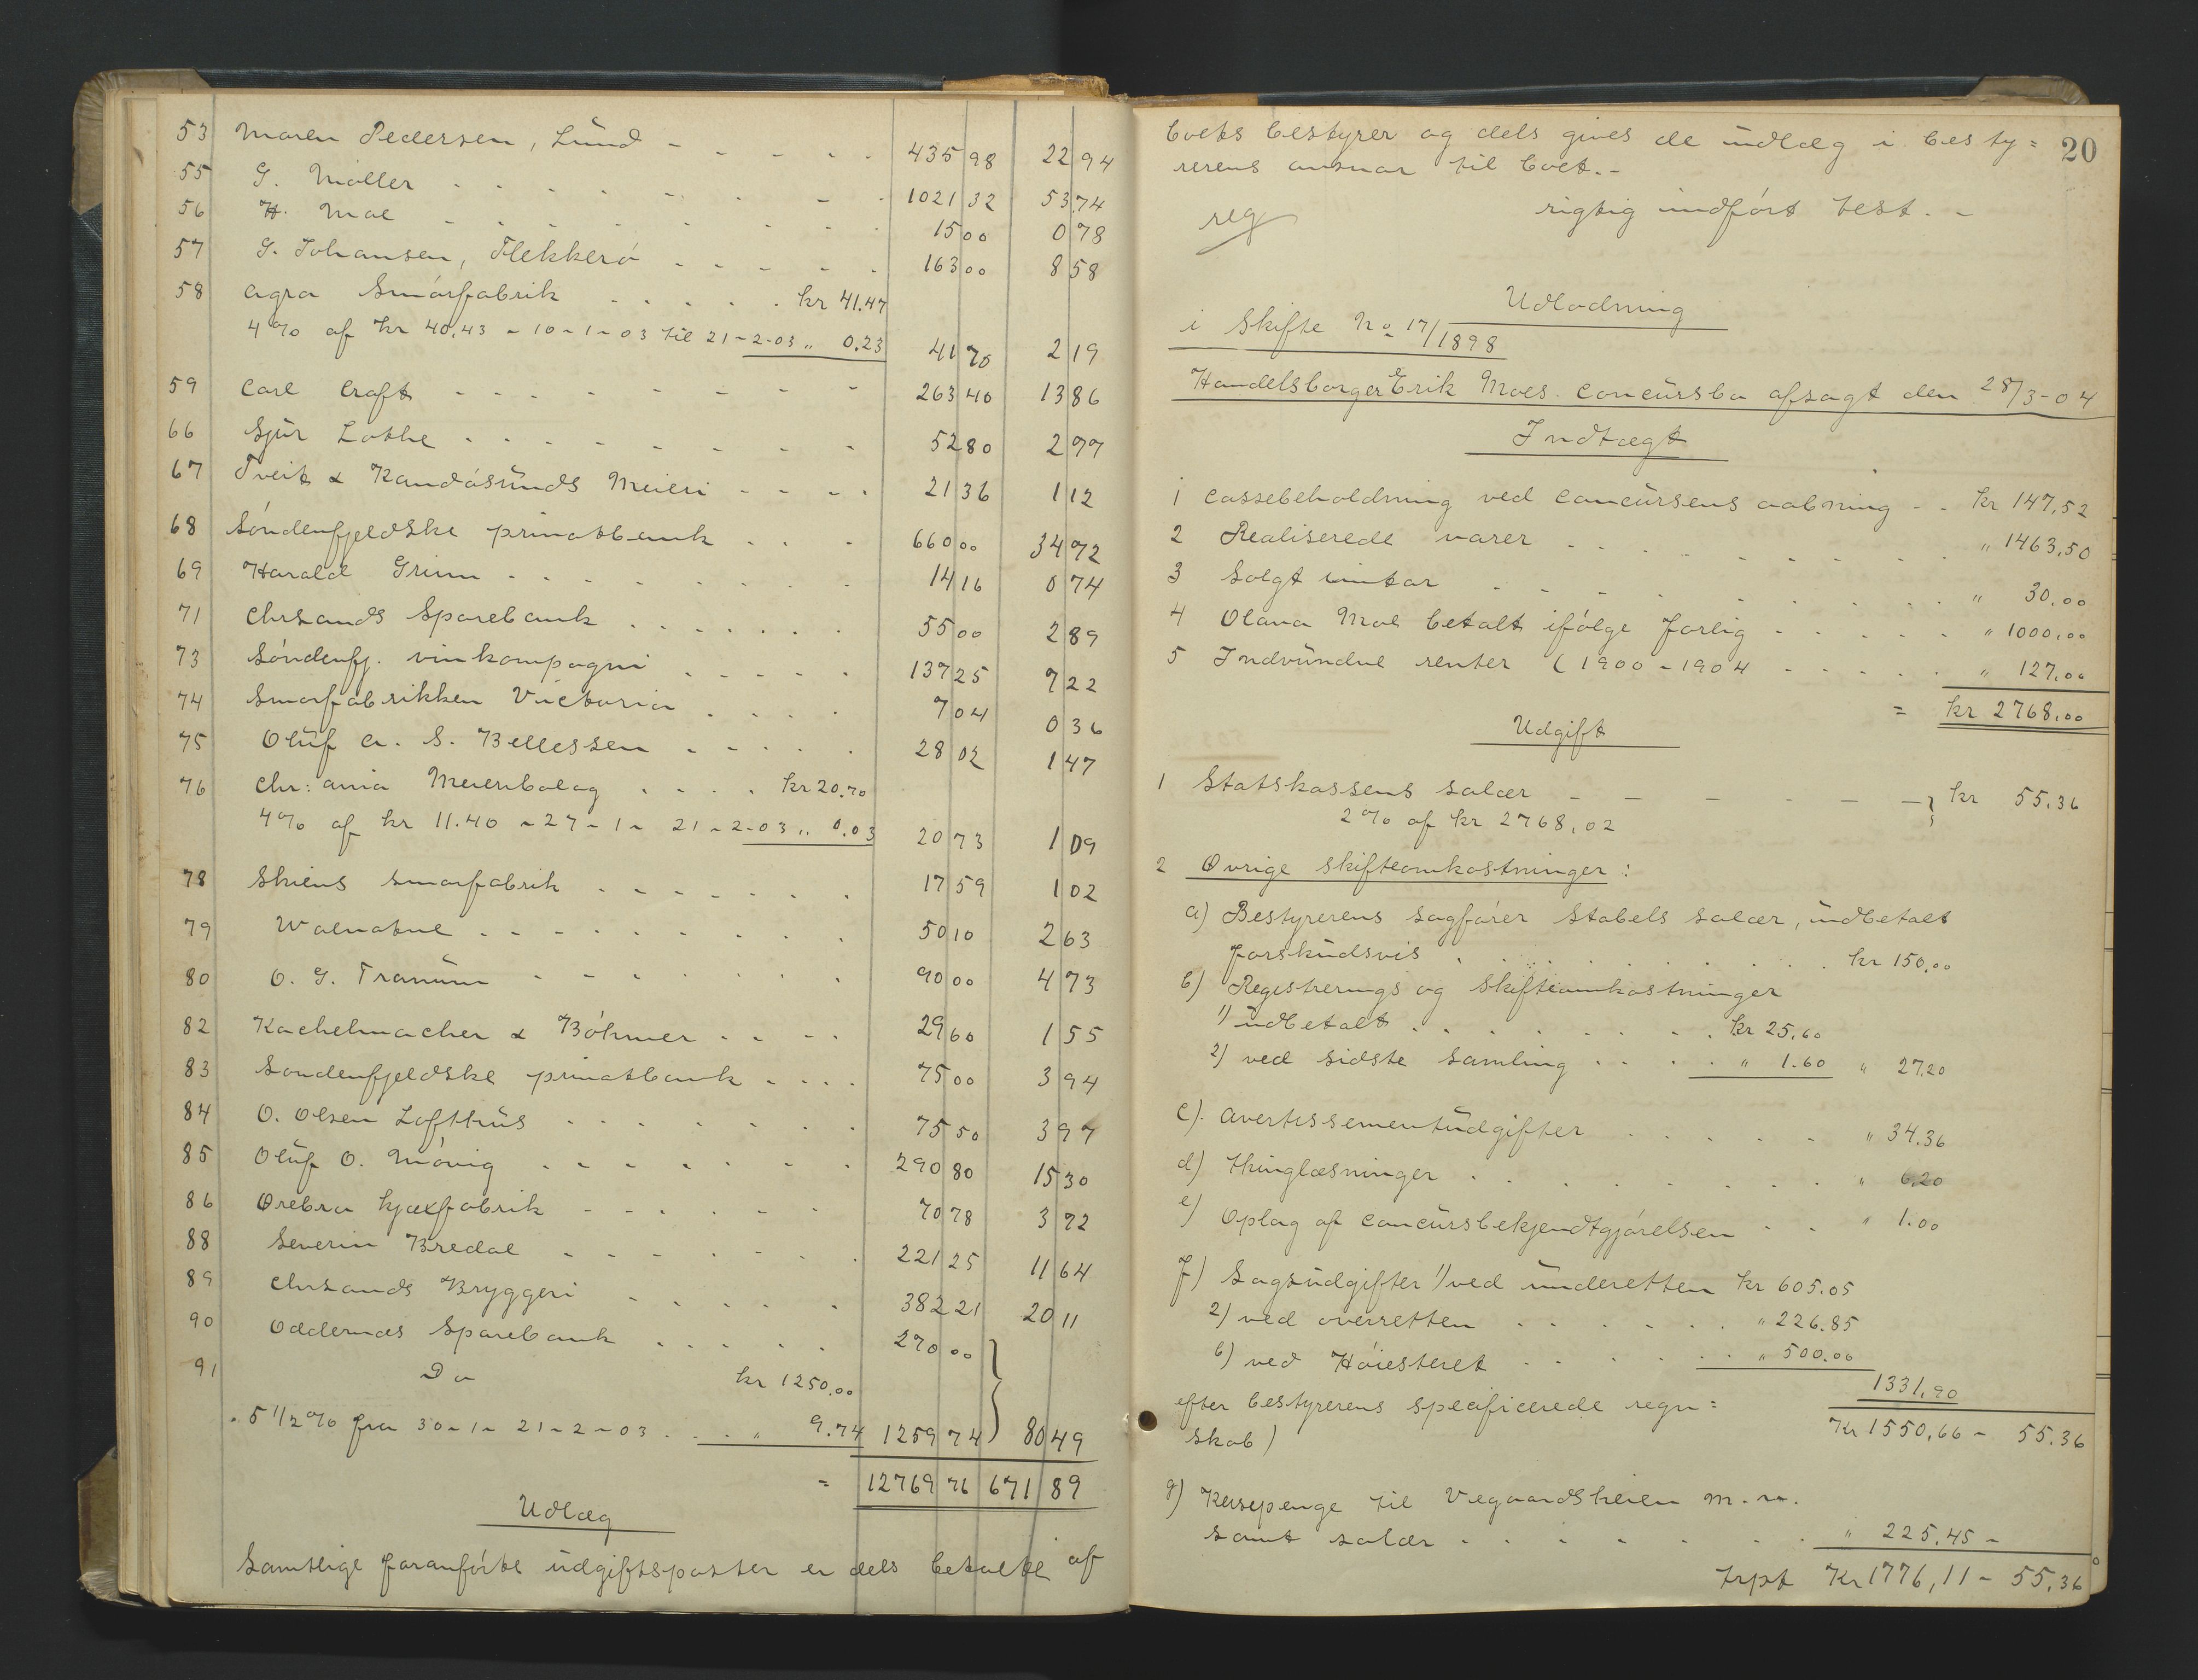 53 Maren Pedersen, Lund - - - - - 435 98 22 94
55 G. Møller - - - - - - 1021 32 53 74
56 H. Moe - - - - - - 15 00 0 78
57 G. Johansen, Flekkerö - - - - - 163 00 8 58
58 Agra Smörfabrik - - - - - kr 41.47
4% af kr 40,43 - 10-1-03 til 21-2-03 " 0.23 41 70 2 19
59 Carl Craft - - - - - - 263 40 13 86
66 Sjur Lothe - - - - - - 52 80 2 77
67 Tveit & Randösunds Meieri - - - - 21 36 1 12
68 Söndenfjeldske privatbank - - - 660 00 34 72
69 Harald Grim - - - - - - 14 16 0 74
71 Chrsands Sparebank - - - - - - 55 00 2 89
73 Söndenfj. vinkompagni - - - - - 137 25 7 22
74 Smørfabrikken Victoria - - - - 7 04 0 36
75 Oluf A. S. Bellessen - - - - - 28 02 1 47
76 Chr:ania Meieribolag - - - - kr 20.70
4% af kr 11.40 - 27-1- 21-2-03 " 0.03 20 73 1 09
78 Skiens smørfabrik - - - - - - 17 59 1 02
79 Walnøtne - - - - - - - 50 10 2 63
80 O. G. Tranum - - - - - - 90 00 4 73
82 Kachelmacher & Böhmer - - - - 29 60 1 55
83 Søndenfjeldske privatbank - - - - 75 00 3 94
84 O. Olsen Lofthus - - - - - - 75 50 3 97
85 Oluf O. Mövig - - - - - - 290 80 15 30
86 Orebro kjæxfabrik - - - - - - 70 78 3 72
88 Severin Bredal - - - - - - 221 25 11 64
89 Chrsands Bryggeri - - - - - 382 21 20 11
90 Oddernæs Sparebank - - - - - 270 00
91 Do kr 1250.00
5 1/2% fra 30-1- 21-2-03 - - - " 9.74 1259 74 80 49
= 12769 76 671 89
Udlæg
Samtlige foranførte udgiftsposter er dels betalte af
20
boets bestyrer og dels gives de udlæg i besty=
rerens ansvar til boet.-
reg rigtig indført test. -
Udlodning
i Skifte No 17/1898
Handelsborger Erik Moes concursbo afsagt den 28/3-04
Indtægt
1 Cassebeholdning ved concursens aabning - - kr 147,52
2 Realiserede varer - - - - - - - " 1463,50
3 Solgt inntar - - - - - - - " 30.00
4 Olava Moe betalt ifölge forlig - - - - - " 1000,00
5 Indvundne renter (1900-1904 - - - - - " 127.00
= kr 2768.00
Udgift
1 Statskassens salær - - - - - - kr 55.36
2% af kr 2768,02
2 Øvrige skifteomkostninger:
a) Bestyrerens sagfører Stabels salær, udbetalt
forskudsvis - - - - - - - - kr 150,00
b) Registrerings og Skifteomkostninger
1) udbetalt - - - - - - - kr 25,60
2) ved sidste samling - - - - " 1.60 " 27.20
c). Avertissementudgifter - - - - - " 34.36
d) thinglæsninger - - - - - - - - " 6.20
e) Oplag af concursbekjendtgjørelsen - - " 1.00
f) Sagsudgifter 1) ved underetten kr 605.05
2) ved overretten - - - - - - " 226.85
6) ved Höiesteret - - - - - - " 500.00
1331,90
efter bestyrerens specificerede regn=
skab) Kr 1550,66 - 55.36
g) Reisepenge til Vegaardsheien m. v.
samt salær - - - - - - " 225,45 -
trpt Kr 1776,11 - 55,36